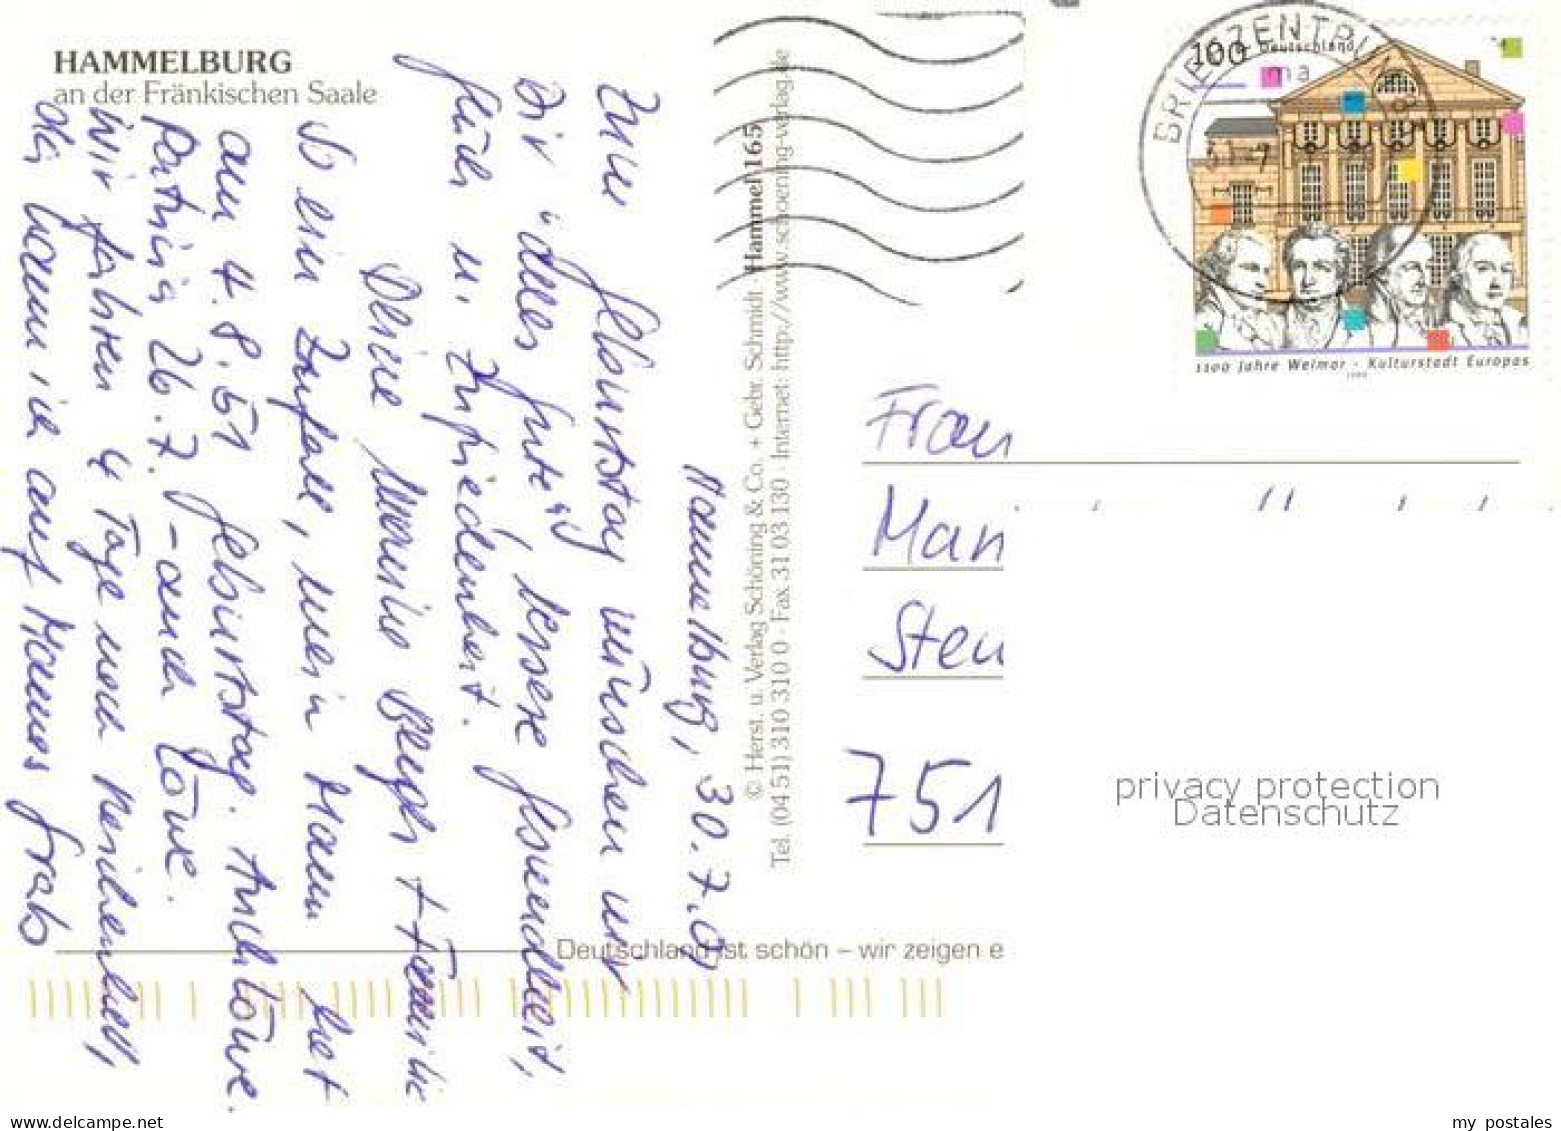 HAMMELBURG
an der Fränkischen Saale
Hammelburg, 30.7.01
Zum Geburtstag wünschen wir
Dir "Alles Gute", bessere Gesundheit,
Glück u. Zufriedenheit.
Deine + Familie
So ein Zufall, mein Mann hat
am 4.8.51 Geburtstag. Auch Löwe.
Patrina 26.7. - auch Löwe.
Wir fahren 4 Tage nach
da kann ich auf Mamas Grab
© Herst. u. Verlag Schöning & Co. + Gebr. Schmidt · Hammel 165
Tel. (04 51) 310 310 0 · Fax 31 03 130 · Internet: http://www.schoening-verlag.de
Deutschland ist schön – wir zeigen e
BRIEFZENTRUM
100 Deutschland
1100 Jahre Weimar - Kulturstadt Europas
1999
Frau
Man
Steu
751
privacy protection
Datenschutz
my postales